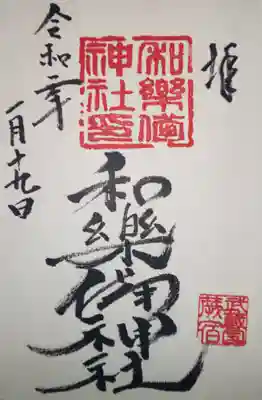 拝
和樂備
神社印
和樂備神社
武蔵国
蕨宿
令和二年
一月十九日